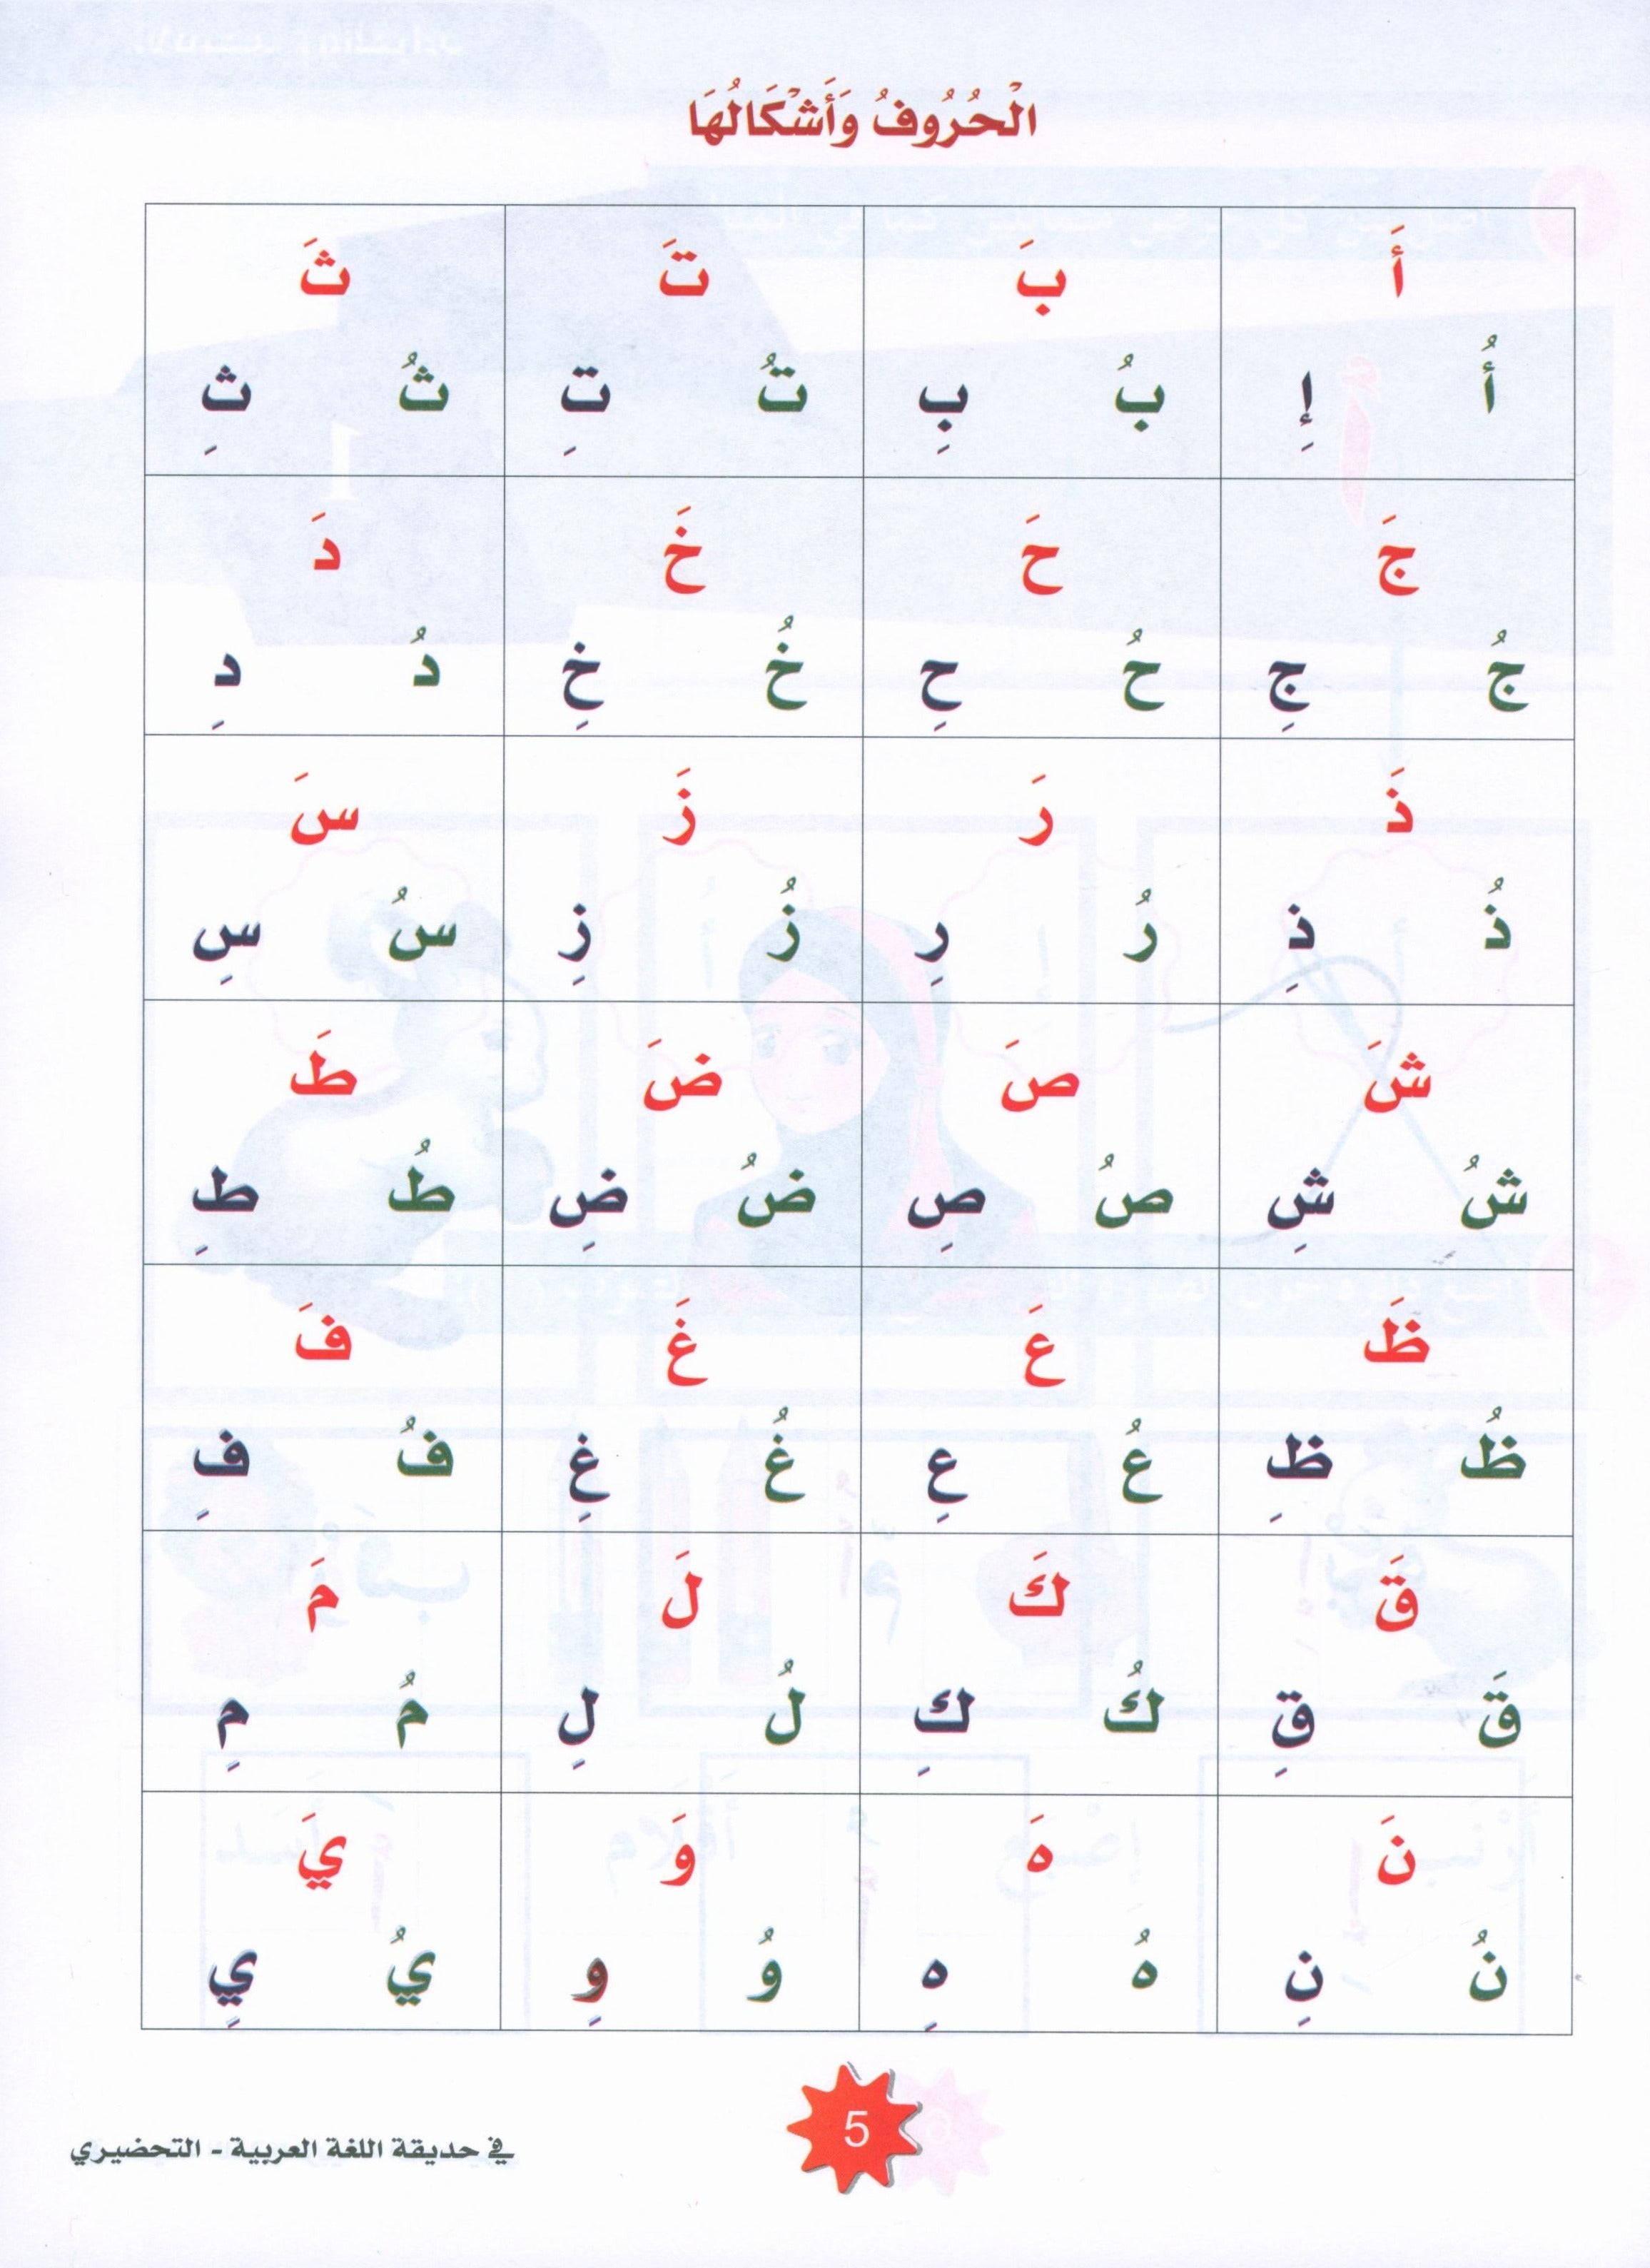 الْحُرُوفُ وَأَشْكَالُهَا
أَ بَ تَ ثَ
أُ إِ بُ بِ تُ تِ ثُ ثِ
جَ حَ خَ دَ
جُ جِ حُ حِ خُ خِ دُ دِ
ذَ رَ زَ سَ
ذُ ذِ رُ رِ زُ زِ سُ سِ
شَ صَ ضَ طَ
شُ شِ صُ صِ ضُ ضِ طُ طِ
ظَ عَ غَ فَ
ظُ ظِ عُ عِ غُ غِ فُ فِ
قَ كَ لَ مَ
قَ قِ كُ كِ لُ لِ مُ مِ
نَ هَ وَ يَ
نُ نِ هُ هِ وُ وِ يُ يِ
5
في حديقة اللغة العربية - التحضيري